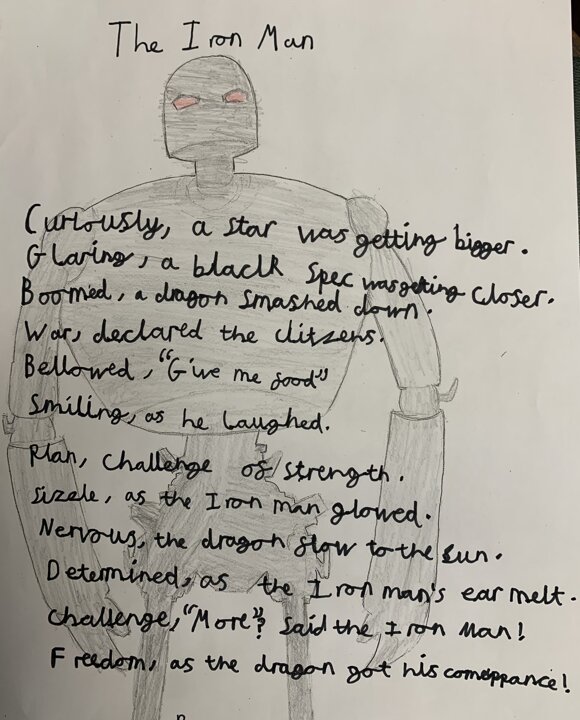 The Iron Man
Curiously, a star was getting bigger.
Glaring, a black spec was geting closer.
Boomed, a dragon smashed down.
War, declared the clitzens.
Bellowed, "Give me food"
Smiling, as he laughed.
Plan, challenge of strength.
Sizzle, as the Iron man glowed.
Nervous, the dragon flow to the sun.
Determined, as the Iron man's ear melt.
Challenge, "More"? said the Iron Man!
Freedom, as the dragon got his comeppance!